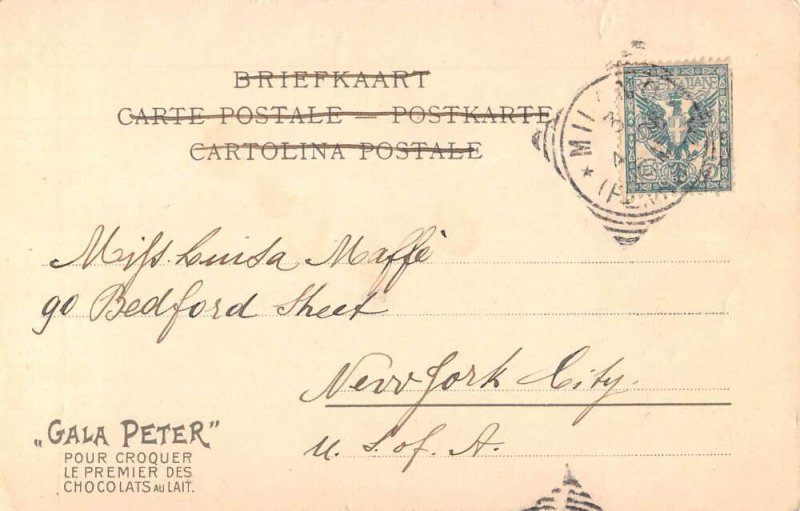 BRIEFKAART
CARTE POSTALE — POSTKARTE
CARTOLINA POSTALE
Miss. Luisa Maffè
90 Bedford Street
New York City.
U. S. of. A.
„GALA PETER"
POUR CROQUER
LE PREMIER DES
CHOCOLATS AU LAIT.